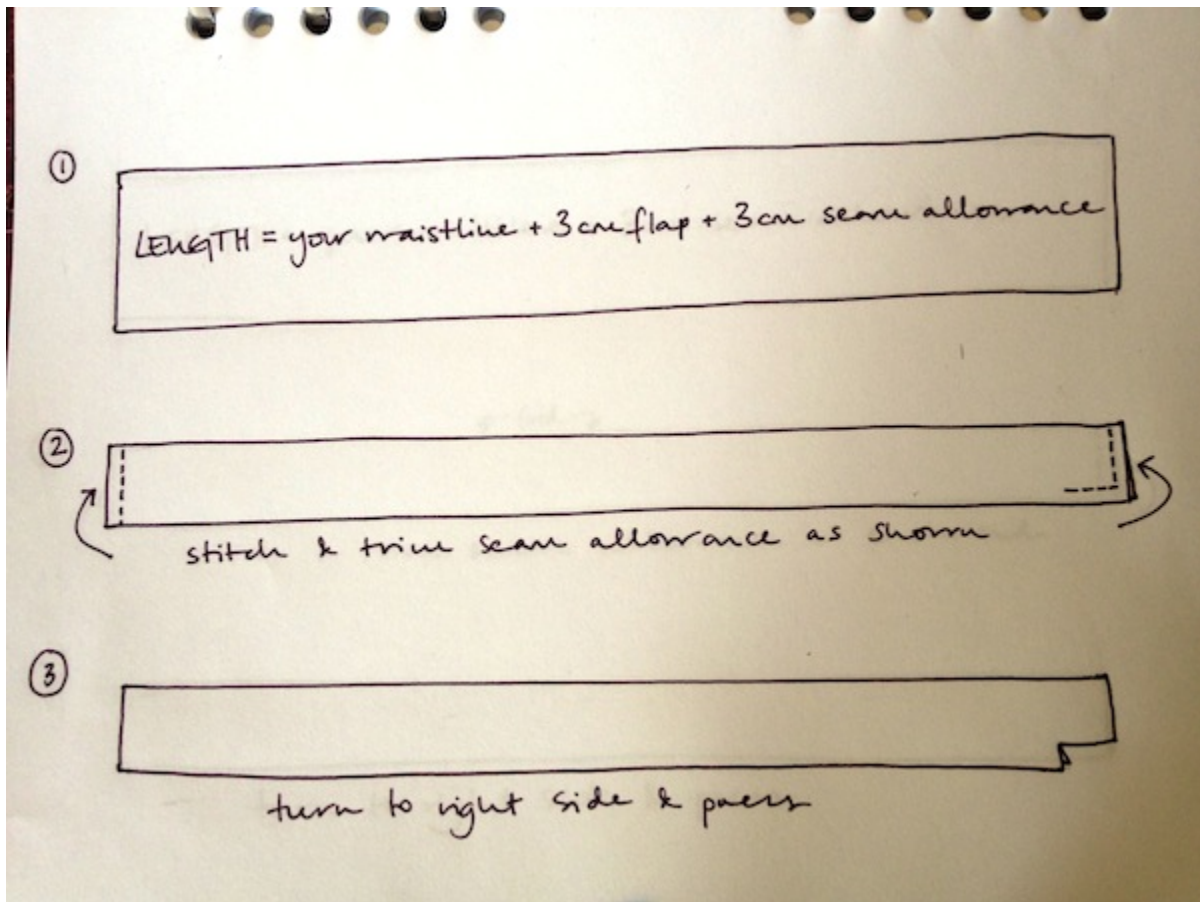 ①
LENGTH = your waistline + 3cm flap + 3cm seam allowance
②
stitch & trim seam allowance as shown
③
turn to right side & press